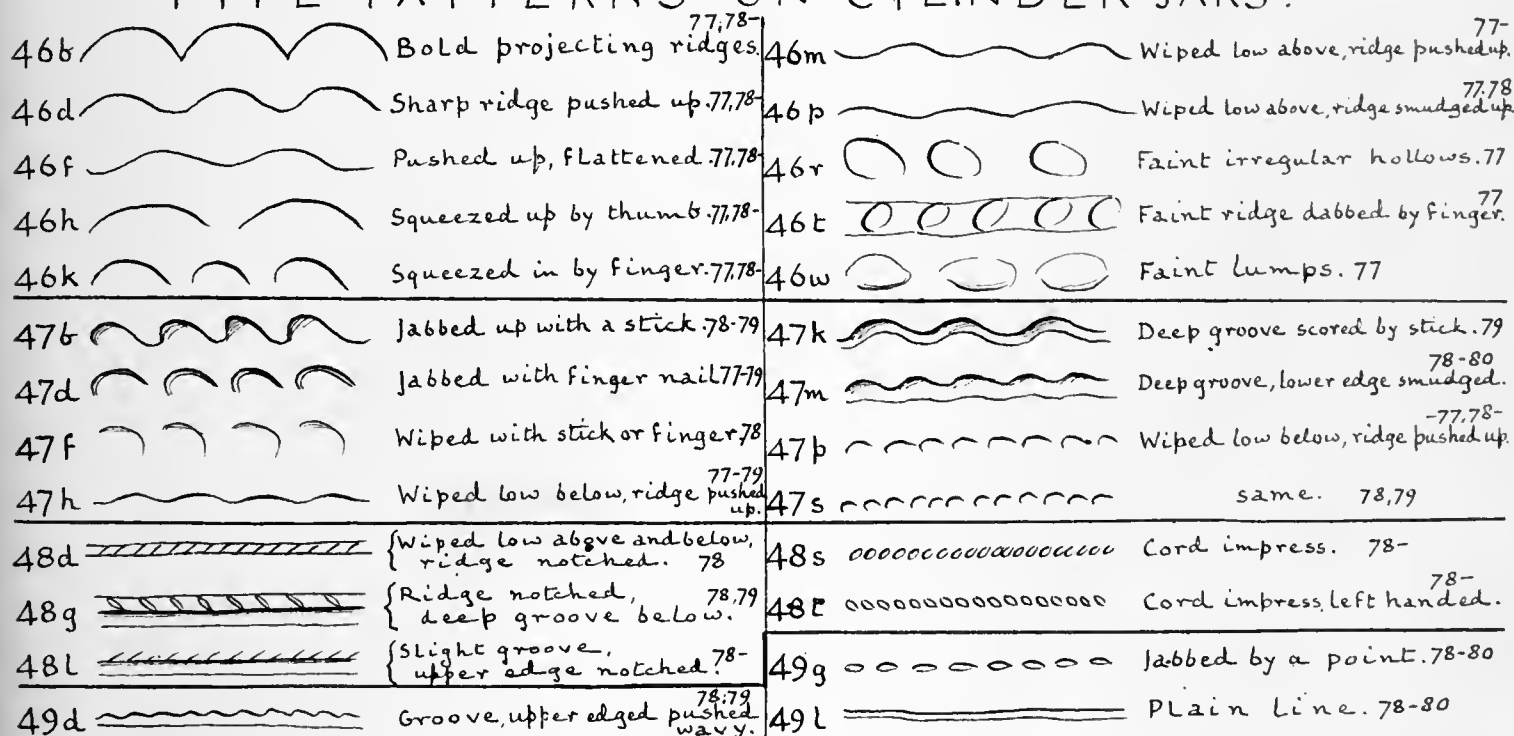 TYPE PATTERNS ON CYLINDER JARS.
46b Bold projecting ridges. 77,78-
46d Sharp ridge pushed up. 77,78-
46f Pushed up, flattened. 77,78-
46h Squeezed up by thumb. 77,78-
46k Squeezed in by finger. 77,78-
47b Jabbed up with a stick. 78-79
47d Jabbed with finger nail 77-79
47f Wiped with stick or finger, 78
47h Wiped low below, ridge pushed 77-79
up.
48d Wiped low above and below,
ridge notched. 78
48g Ridge notched, 78,79
deep groove below.
48l Slight groove, 78-
upper edge notched.
49d Groove, upper edged pushed 78.79
wavy.
46m Wiped low above, ridge pushed up. 77-
46p Wiped low above, ridge smudged up 77.78
46r Faint irregular hollows. 77
46t Faint ridge dabbed by finger. 77
46w Faint lumps. 77
47k Deep groove scored by stick. 79
47m Deep groove, lower edge smudged. 78-80
47p Wiped low below, ridge pushed up. -77,78-
47s same. 78,79
48s Cord impress. 78-
48t Cord impress, left handed. 78-
49g Jabbed by a point. 78-80
49l Plain line. 78-80